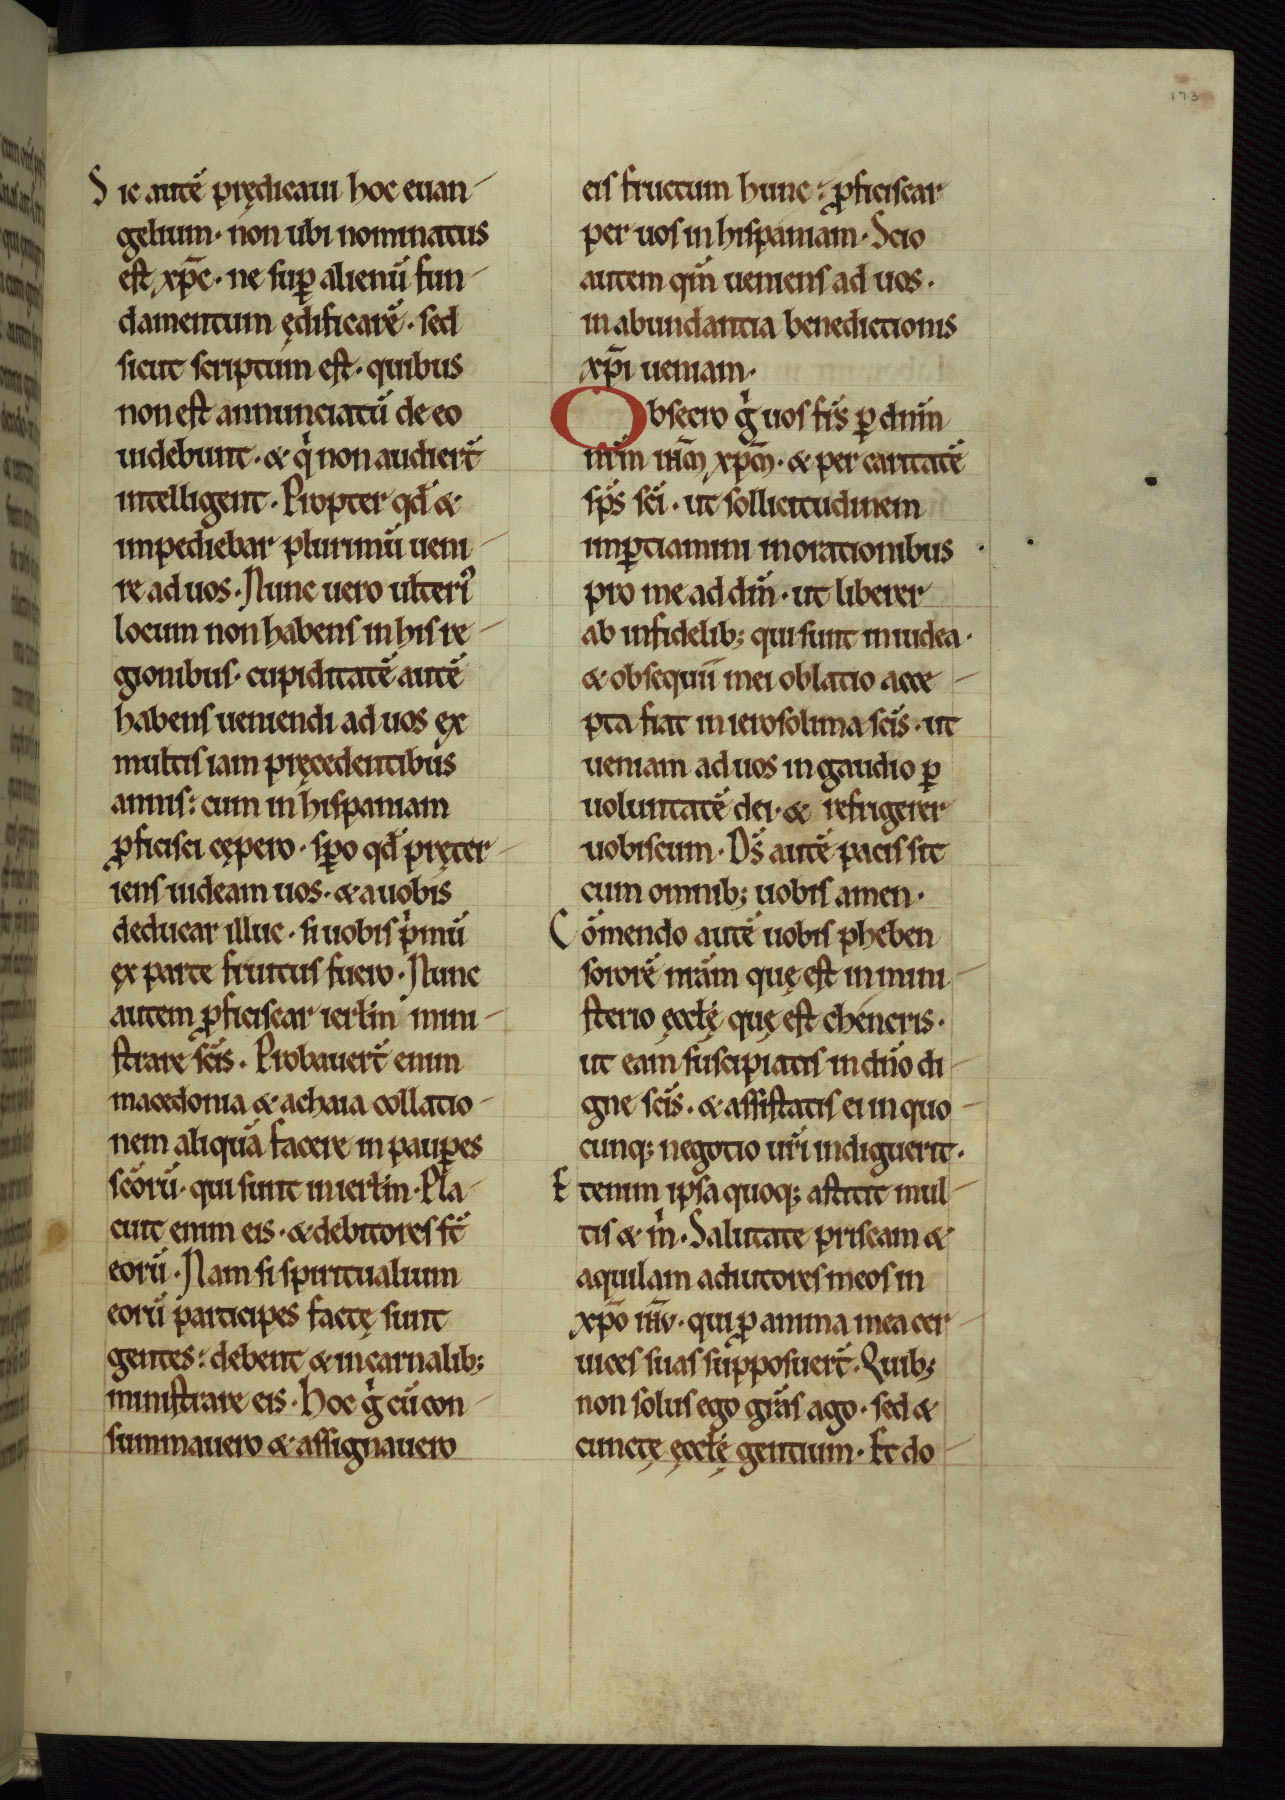 173
Sic autē prędicaui hoc euan-
gelium· non ubi nominatus
est xp̄c· ne suꝑ alienū fun-
damentum ędificarē· sed
sicut scriptum est· quibus
non est annunciatū de eo
uidebunt· & qͥ non audiert̄
intelligent· Propter qd̄ &
impediebar plurimū ueni-
re ad uos· Nunc uero ulteriꝰ
locum non habens in his re-
gionibus· cupiditatē autē
habens ueniendi ad uos ex
multis iam pręcedentibus
annis: cum in hispaniam
ꝓficisci cępero· sꝑo qd̄ pręter-
iens uideam uos· & a uobis
deducar illuc· si uobis pͥmū
ex parte fruitus fuero· Nunc
autem ꝓficiscar ierłm mini-
strare sc̄is· Probauert̄ enim
macedonia & achaia collatio-
nem aliquā facere in pauꝑes
sc̄orū· qui sunt in ierłm· Pla-
cuit enim eis· & debitores st̄
eorū· Nam si spiritualium
eorū participes factę sunt
gentes: debent & in carnalib;
ministrare eis· Hoc gͥ cū con-
summauero & assignauero
eis fructum hunc: ꝓficiscar
per uos in hispaniam· Scio
autem qm̄ ueniens ad uos·
in abundantia benedictionis
xp̄i ueniam·
Obsecro gͥ uos fr̄s ꝑ dnm̄
nrm̄ ihm̄ xpm̄· & per caritatē
sp̄s sc̄i· ut sollicitudinem
imꝑtiamini in orationibus
pro me ad dm̄· ut liberer
ab infidelib; qui sunt in iudea·
& obsequii mei oblatio acce-
pta fiat in ierosolima sc̄is· ut
ueniam ad uos in gaudio ꝑ
uoluntatē dei· & refrigerer
uobiscum· Ds̄ autē pacis sit
cum omnib; uobis amen·
Cōmendo autē uobis pheben
sororē nrām quę est in mini-
sterio ęcclę̄ quę est chencris·
ut eam suscipiatis in dn̄o di-
gne sc̄is· & assistatis ei in quo-
cunq; negotio ur̄i indiguerit·
Etenim ipsa quoq; astitit mul-
tis & mͥ· Salutate priscam &
aquilam adiutores meos in
xp̄o ihū· qui ꝓ anima mea cer-
uices suas supposuert̄· Quib;
non solus ego grās ago· sed &
cunctę ęcclę̄ gentium· Et do-